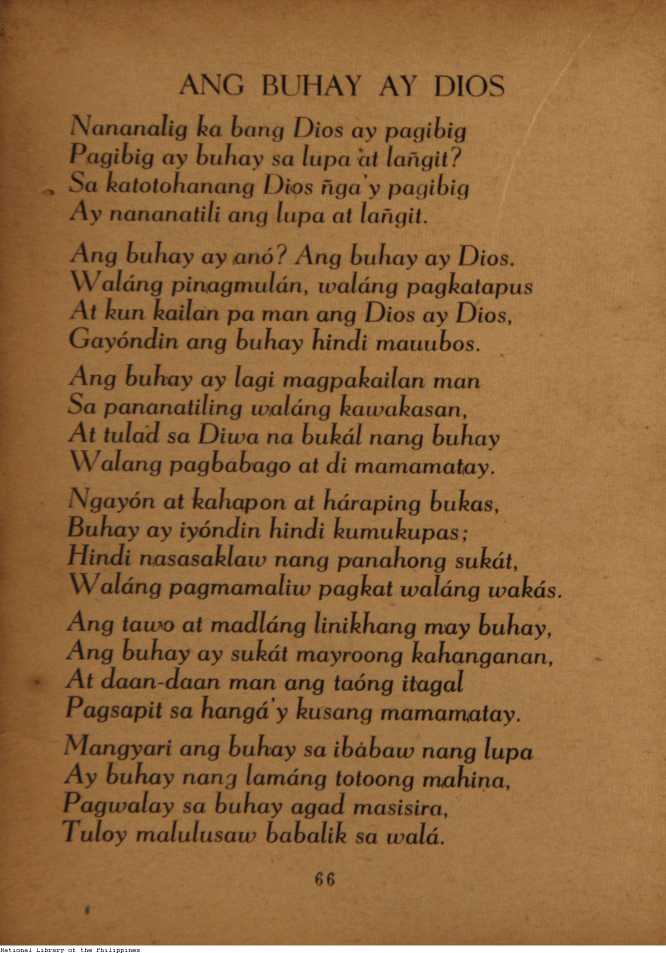 ANG BUHAY AY DIOS
Nananalig ka bang Dios ay pagibig
Pagibig ay buhay sa lupa at lañgit?
Sa katotohanang Dios ñga'y pagibig
Ay nananatili ang lupa at lañgit.
Ang buhay ay anó? Ang buhay ay Dios.
Waláng pinagmulán, waláng pagkatapus
At kun kailan pa man ang Dios ay Dios,
Gayóndin ang buhay hindi mauubos.
Ang buhay ay lagi magpakailan man
Sa pananatiling waláng kawakasan,
At tulad sa Diwa na bukál nang buhay
Walang pagbabago at di mamamatay.
Ngayón at kahapon at háraping bukas,
Buhay ay iyóndin hindi kumukupas;
Hindi nasasaklaw nang panahong sukát,
Waláng pagmamaliw pagkat waláng wakás.
Ang tawo at madláng linikhang may buhay,
Ang buhay ay sukát mayroong kahanganan,
At daan-daan man ang taóng itagal
Pagsapit sa hangá'y kusang mamamatay.
Mangyari ang buhay sa ibabaw nang lupa
Ay buhay nang lamáng totoong mahina,
Pagwalay sa buhay agad masisira,
Tuloy malulusaw babalik sa walá.
66
National Library of the Philippines